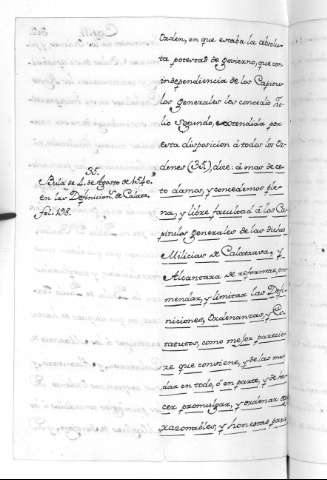 orden, en que estaba la absolu-
ta potestad de govierno, que con
independencia de los Capitu-
los generales les concedió Ju-
lio Segundo, extendida por
esta disposicion á todas las Or-
denes (35.) dice: á mas de es-
to damos, y concedemos ple-
na, y libre facultad á los Ca-
pitulos generales de las dichas
Milicias de Calatrava, y
Alcantara de reformar, en-
mendar, y limitar las Defi-
niciones, Ordenanzas, y Es-
tatutos, como mejor parecie-
re que conviene, y de las mu-
dar en todo, ó en parte, y de ha-
cer promulgar, y ordenar
razonables, y honestas para
35.
Bula de 4. de Agosto de 1540.
en las Definicion.s de Calatr.
fol. 698.